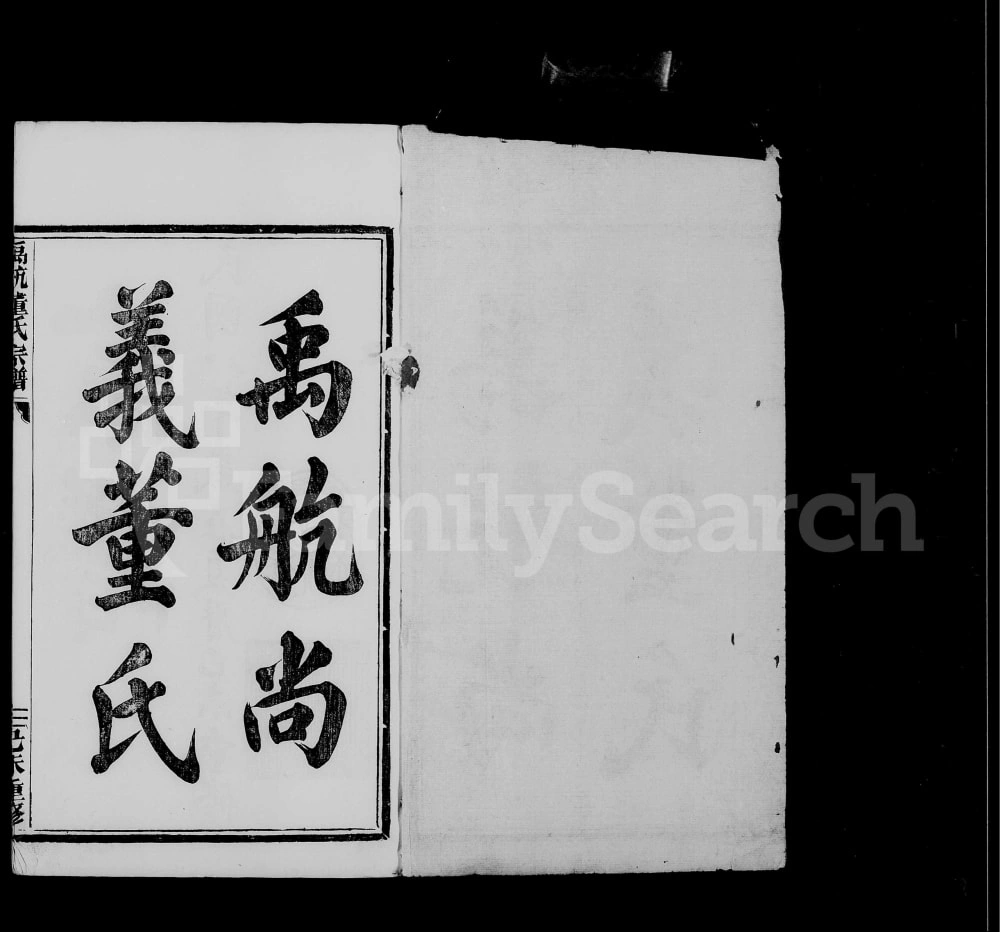 禹航尚
義董氏
禹航董氏宗譜
己未重修
FamilySearch